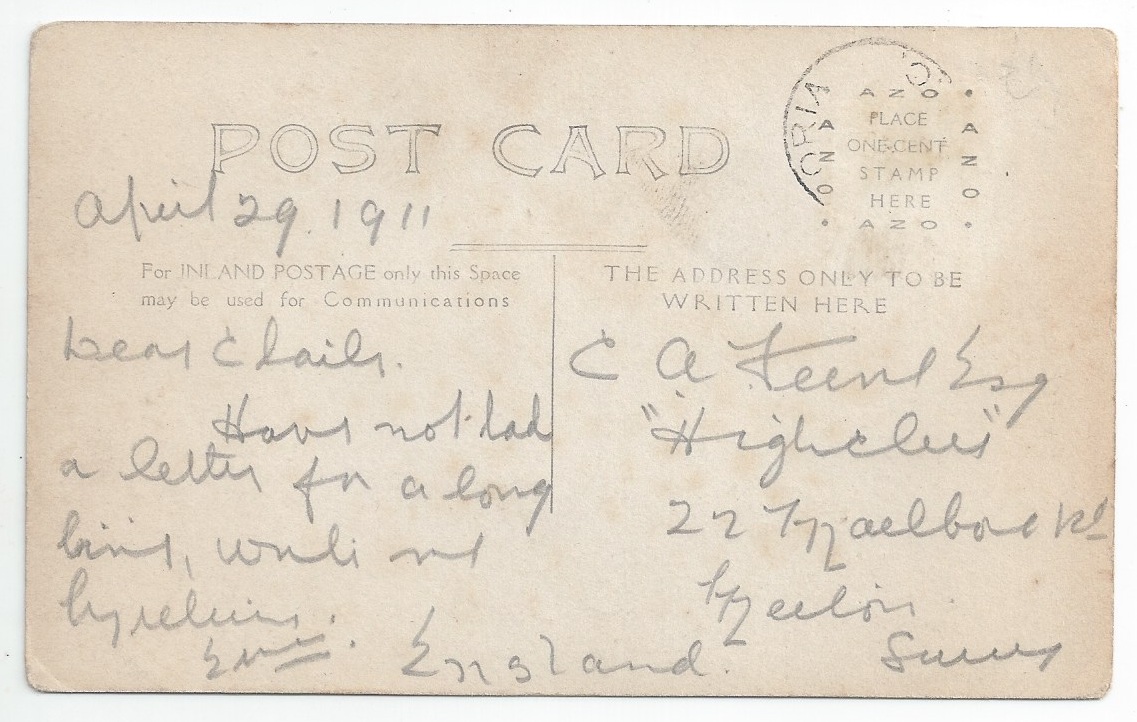 ORIA
AZO
AZO
AZO
PLACE
ONE CENT
STAMP
HERE
AZO
POST CARD
April 29. 1911
For INLAND POSTAGE only this Space
may be used for Communications
THE ADDRESS ONLY TO BE
WRITTEN HERE
Dear
Have not had
a letter for a long
time, write me
by return.
C A Esq
"Highclere"
22 Rd
Surrey
England.